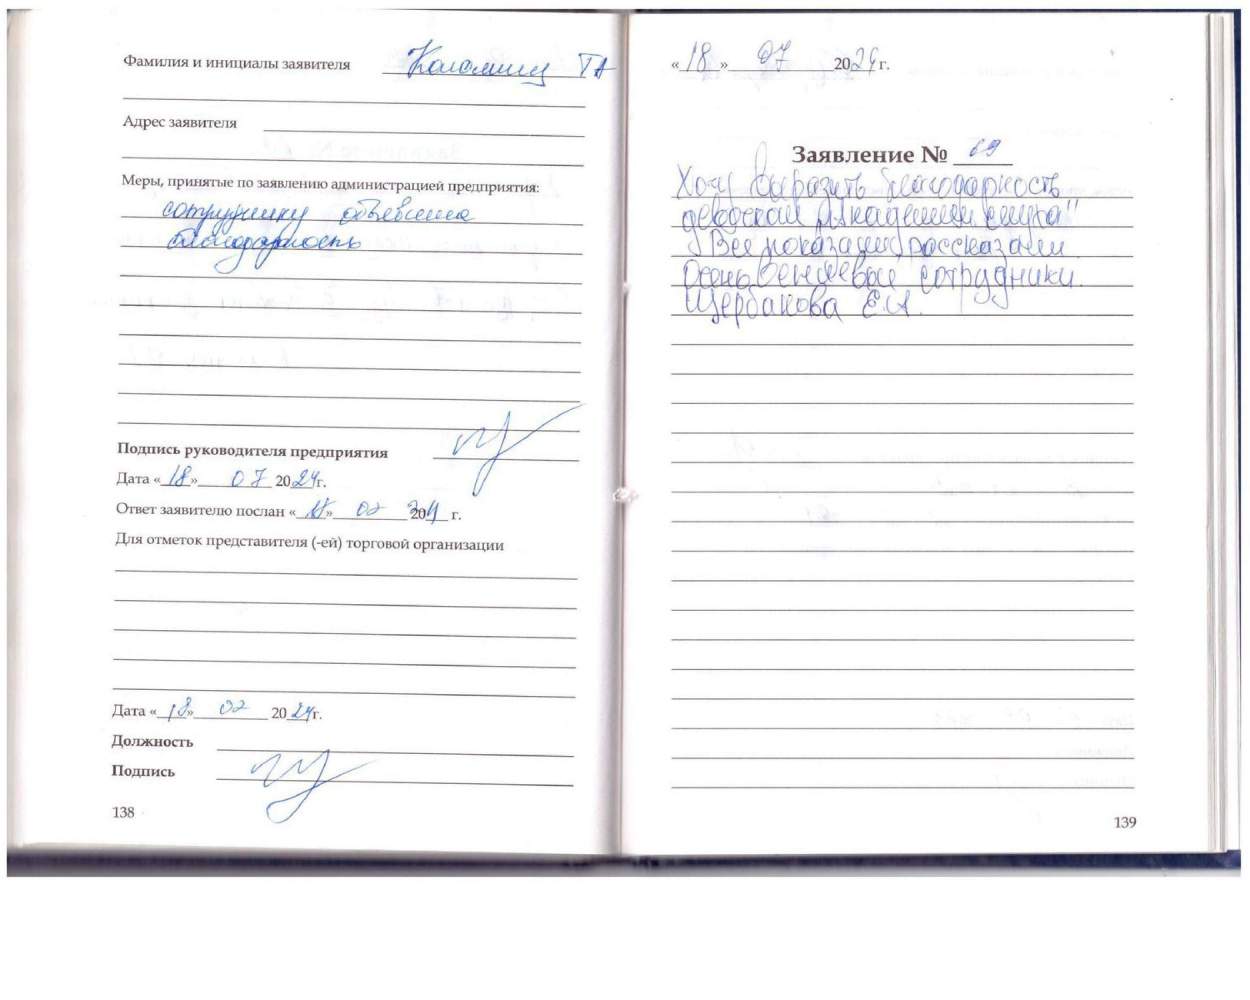 Фамилия и инициалы заявителя ТА
Адрес заявителя
Меры, принятые по заявлению администрацией предприятия:
сотруднику объявлена
благодарность
Подпись руководителя предприятия
Дата «18» 07 2024г.
Ответ заявителю послан «18» 07 2024 г.
Для отметок представителя (-ей) торговой организации
Дата «18» 07 2024г.
Должность
Подпись
138
«18» 07 2024г.
Заявление № 69
Хочу выразить благодарность
"Академии
Все показали, рассказали
Очень вежливые сотрудники.
Щербакова Е.А.
139